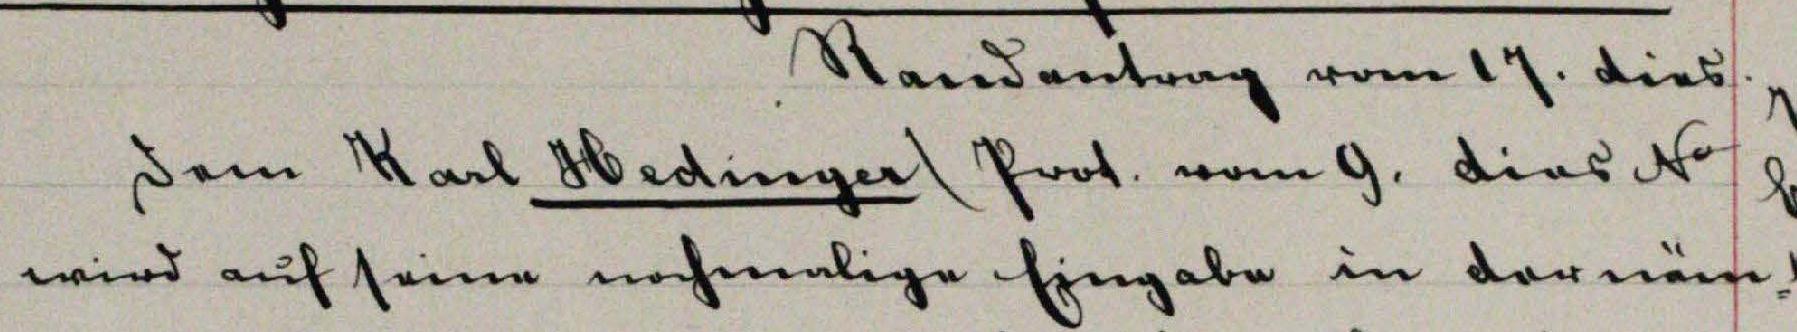 Randantrag vom 17. dies.
Dem Karl Hedinger (Prot. vom 9. dies No
wird auf seine nochmalige Eingabe in der näm-